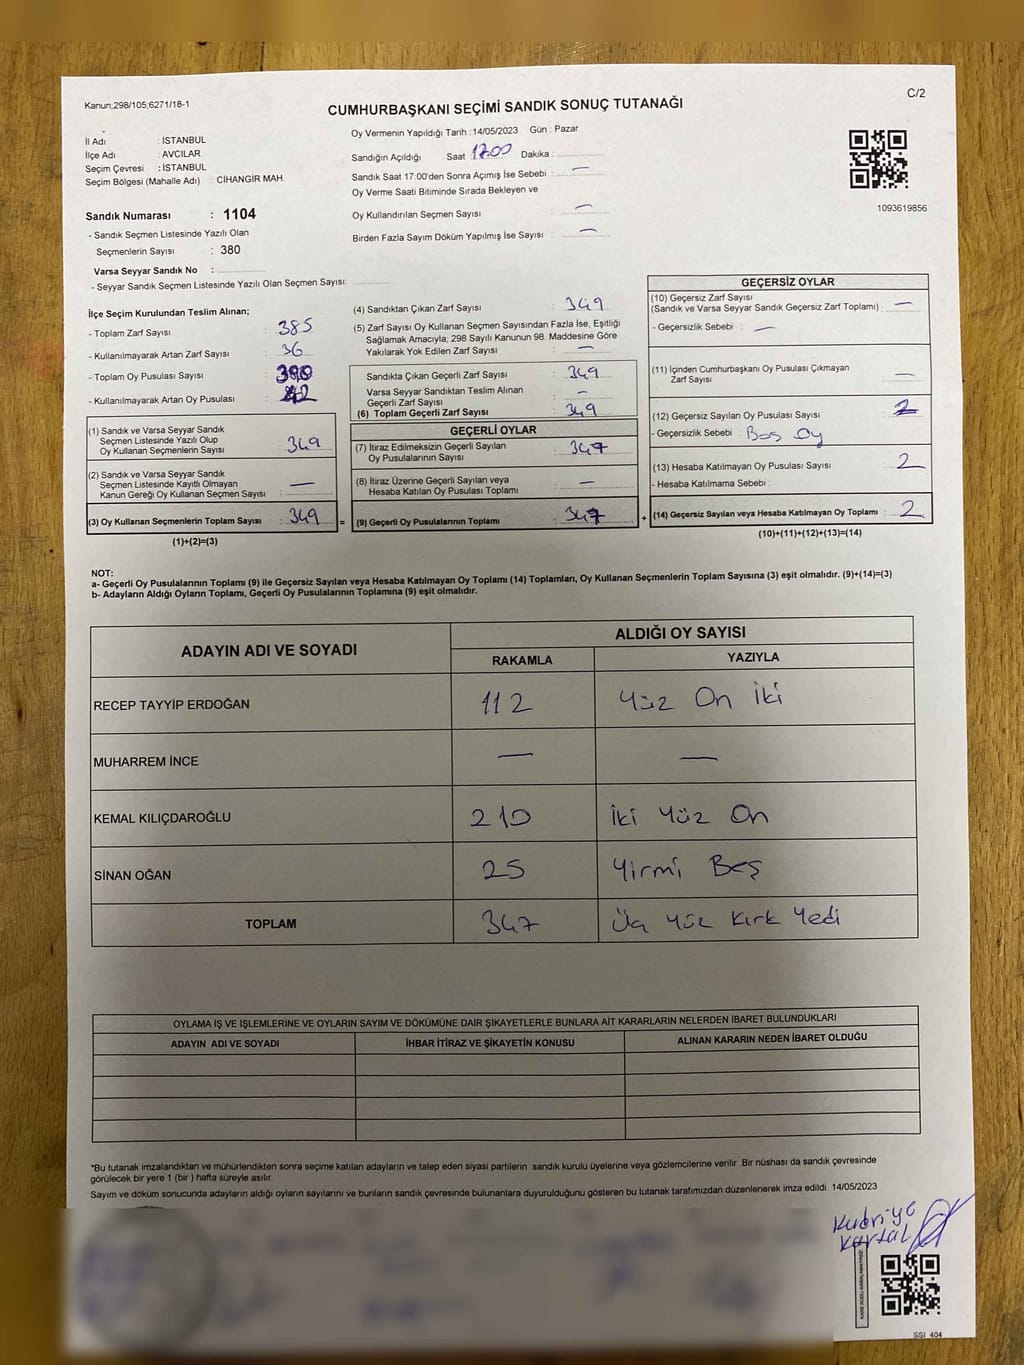 Kanun;298/105;6271/18-1
C/2
CUMHURBAŞKANI SEÇİMİ SANDIK SONUÇ TUTANAĞI
İl Adı : İSTANBUL
İlçe Adı : AVCILAR
Seçim Çevresi : İSTANBUL
Seçim Bölgesi (Mahalle Adı) : CİHANGİR MAH.
Oy Vermenin Yapıldığı Tarih : 14/05/2023 Gün : Pazar
Sandığın Açıldığı Saat 17.00 Dakika :
Sandık Saat 17:00'den Sonra Açımış İse Sebebi : —
Oy Verme Saati Bitiminde Sırada Bekleyen ve
Oy Kullandırılan Seçmen Sayısı : —
Birden Fazla Sayım Döküm Yapılmış İse Sayısı : —
1093619856
Sandık Numarası : 1104
- Sandık Seçmen Listesinde Yazılı Olan
Seçmenlerin Sayısı : 380
Varsa Seyyar Sandık No :
- Seyyar Sandık Seçmen Listesinde Yazılı Olan Seçmen Sayısı:
İlçe Seçim Kurulundan Teslim Alınan;
- Toplam Zarf Sayısı : 385
- Kullanılmayarak Artan Zarf Sayısı : 36
- Toplam Oy Pusulası Sayısı :
- Kullanılmayarak Artan Oy Pusulası :
(1) Sandık ve Varsa Seyyar Sandık
Seçmen Listesinde Yazılı Olup
Oy Kullanan Seçmenlerin Sayısı : 349
(2) Sandık ve Varsa Seyyar Sandık
Seçmen Listesinde Kayıtlı Olmayan
Kanun Gereği Oy Kullanan Seçmen Sayısı : —
(3) Oy Kullanan Seçmenlerin Toplam Sayısı : 349 =
(1)+(2)=(3)
(4) Sandıktan Çıkan Zarf Sayısı : 349
(5) Zarf Sayısı Oy Kullanan Seçmen Sayısından Fazla İse, Eşitliği
Sağlamak Amacıyla; 298 Sayılı Kanunun 98. Maddesine Göre
Yakılarak Yok Edilen Zarf Sayısı : —
Sandıkta Çıkan Geçerli Zarf Sayısı : 349
Varsa Seyyar Sandıktan Teslim Alınan
Geçerli Zarf Sayısı : —
(6) Toplam Geçerli Zarf Sayısı : 349
GEÇERLİ OYLAR
(7) İtiraz Edilmeksizin Geçerli Sayılan
Oy Pusulalarının Sayısı : 347
(8) İtiraz Üzerine Geçerli Sayılan veya
Hesaba Katılan Oy Pusulası Toplamı : —
(9) Geçerli Oy Pusulalarının Toplamı : 347 +
GEÇERSİZ OYLAR
(10) Geçersiz Zarf Sayısı
(Sandık ve Varsa Seyyar Sandık Geçersiz Zarf Toplamı) : —
- Geçersizlik Sebebi : —
(11) İçinden Cumhurbaşkanı Oy Pusulası Çıkmayan
Zarf Sayısı : —
(12) Geçersiz Sayılan Oy Pusulası Sayısı : 2
- Geçersizlik Sebebi : Boş oy
(13) Hesaba Katılmayan Oy Pusulası Sayısı : 2
- Hesaba Katılmama Sebebi :
(14) Geçersiz Sayılan veya Hesaba Katılmayan Oy Toplamı : 2
(10)+(11)+(12)+(13)=(14)
NOT:
a- Geçerli Oy Pusulalarının Toplamı (9) ile Geçersiz Sayılan veya Hesaba Katılmayan Oy Toplamı (14) Toplamları, Oy Kullanan Seçmenlerin Toplam Sayısına (3) eşit olmalıdır. (9)+(14)=(3)
b- Adayların Aldığı Oyların Toplamı, Geçerli Oy Pusulalarının Toplamına (9) eşit olmalıdır.
ADAYIN ADI VE SOYADI
ALDIĞI OY SAYISI
RAKAMLA YAZIYLA
RECEP TAYYİP ERDOĞAN 112 Yüz On İki
MUHARREM İNCE — —
KEMAL KILIÇDAROĞLU 210 İki Yüz On
SİNAN OĞAN 25 Yirmi Beş
TOPLAM 347 Üç Yüz Kırk Yedi
OYLAMA İŞ VE İŞLEMLERİNE VE OYLARIN SAYIM VE DÖKÜMÜNE DAİR ŞİKAYETLERLE BUNLARA AİT KARARLARIN NELERDEN İBARET BULUNDUKLARI
ADAYIN ADI VE SOYADI İHBAR İTİRAZ VE ŞİKAYETİN KONUSU ALINAN KARARIN NEDEN İBARET OLDUĞU
*Bu tutanak imzalandıktan ve mühürlendikten sonra seçime katılan adayların ve talep eden siyasi partilerin sandık kurulu üyelerine veya gözlemcilerine verilir .Bir nüshası da sandık çevresinde
görülecek bir yere 1 (bir ) hafta süreyle asılır.
Sayım ve döküm sonucunda adayların aldığı oyların sayılarını ve bunların sandık çevresinde bulunanlara duyurulduğunu gösteren bu tutanak tarafımızdan düzenlenerek imza edildi. 14/05/2023
Kudriye
Kartal
SSI 404